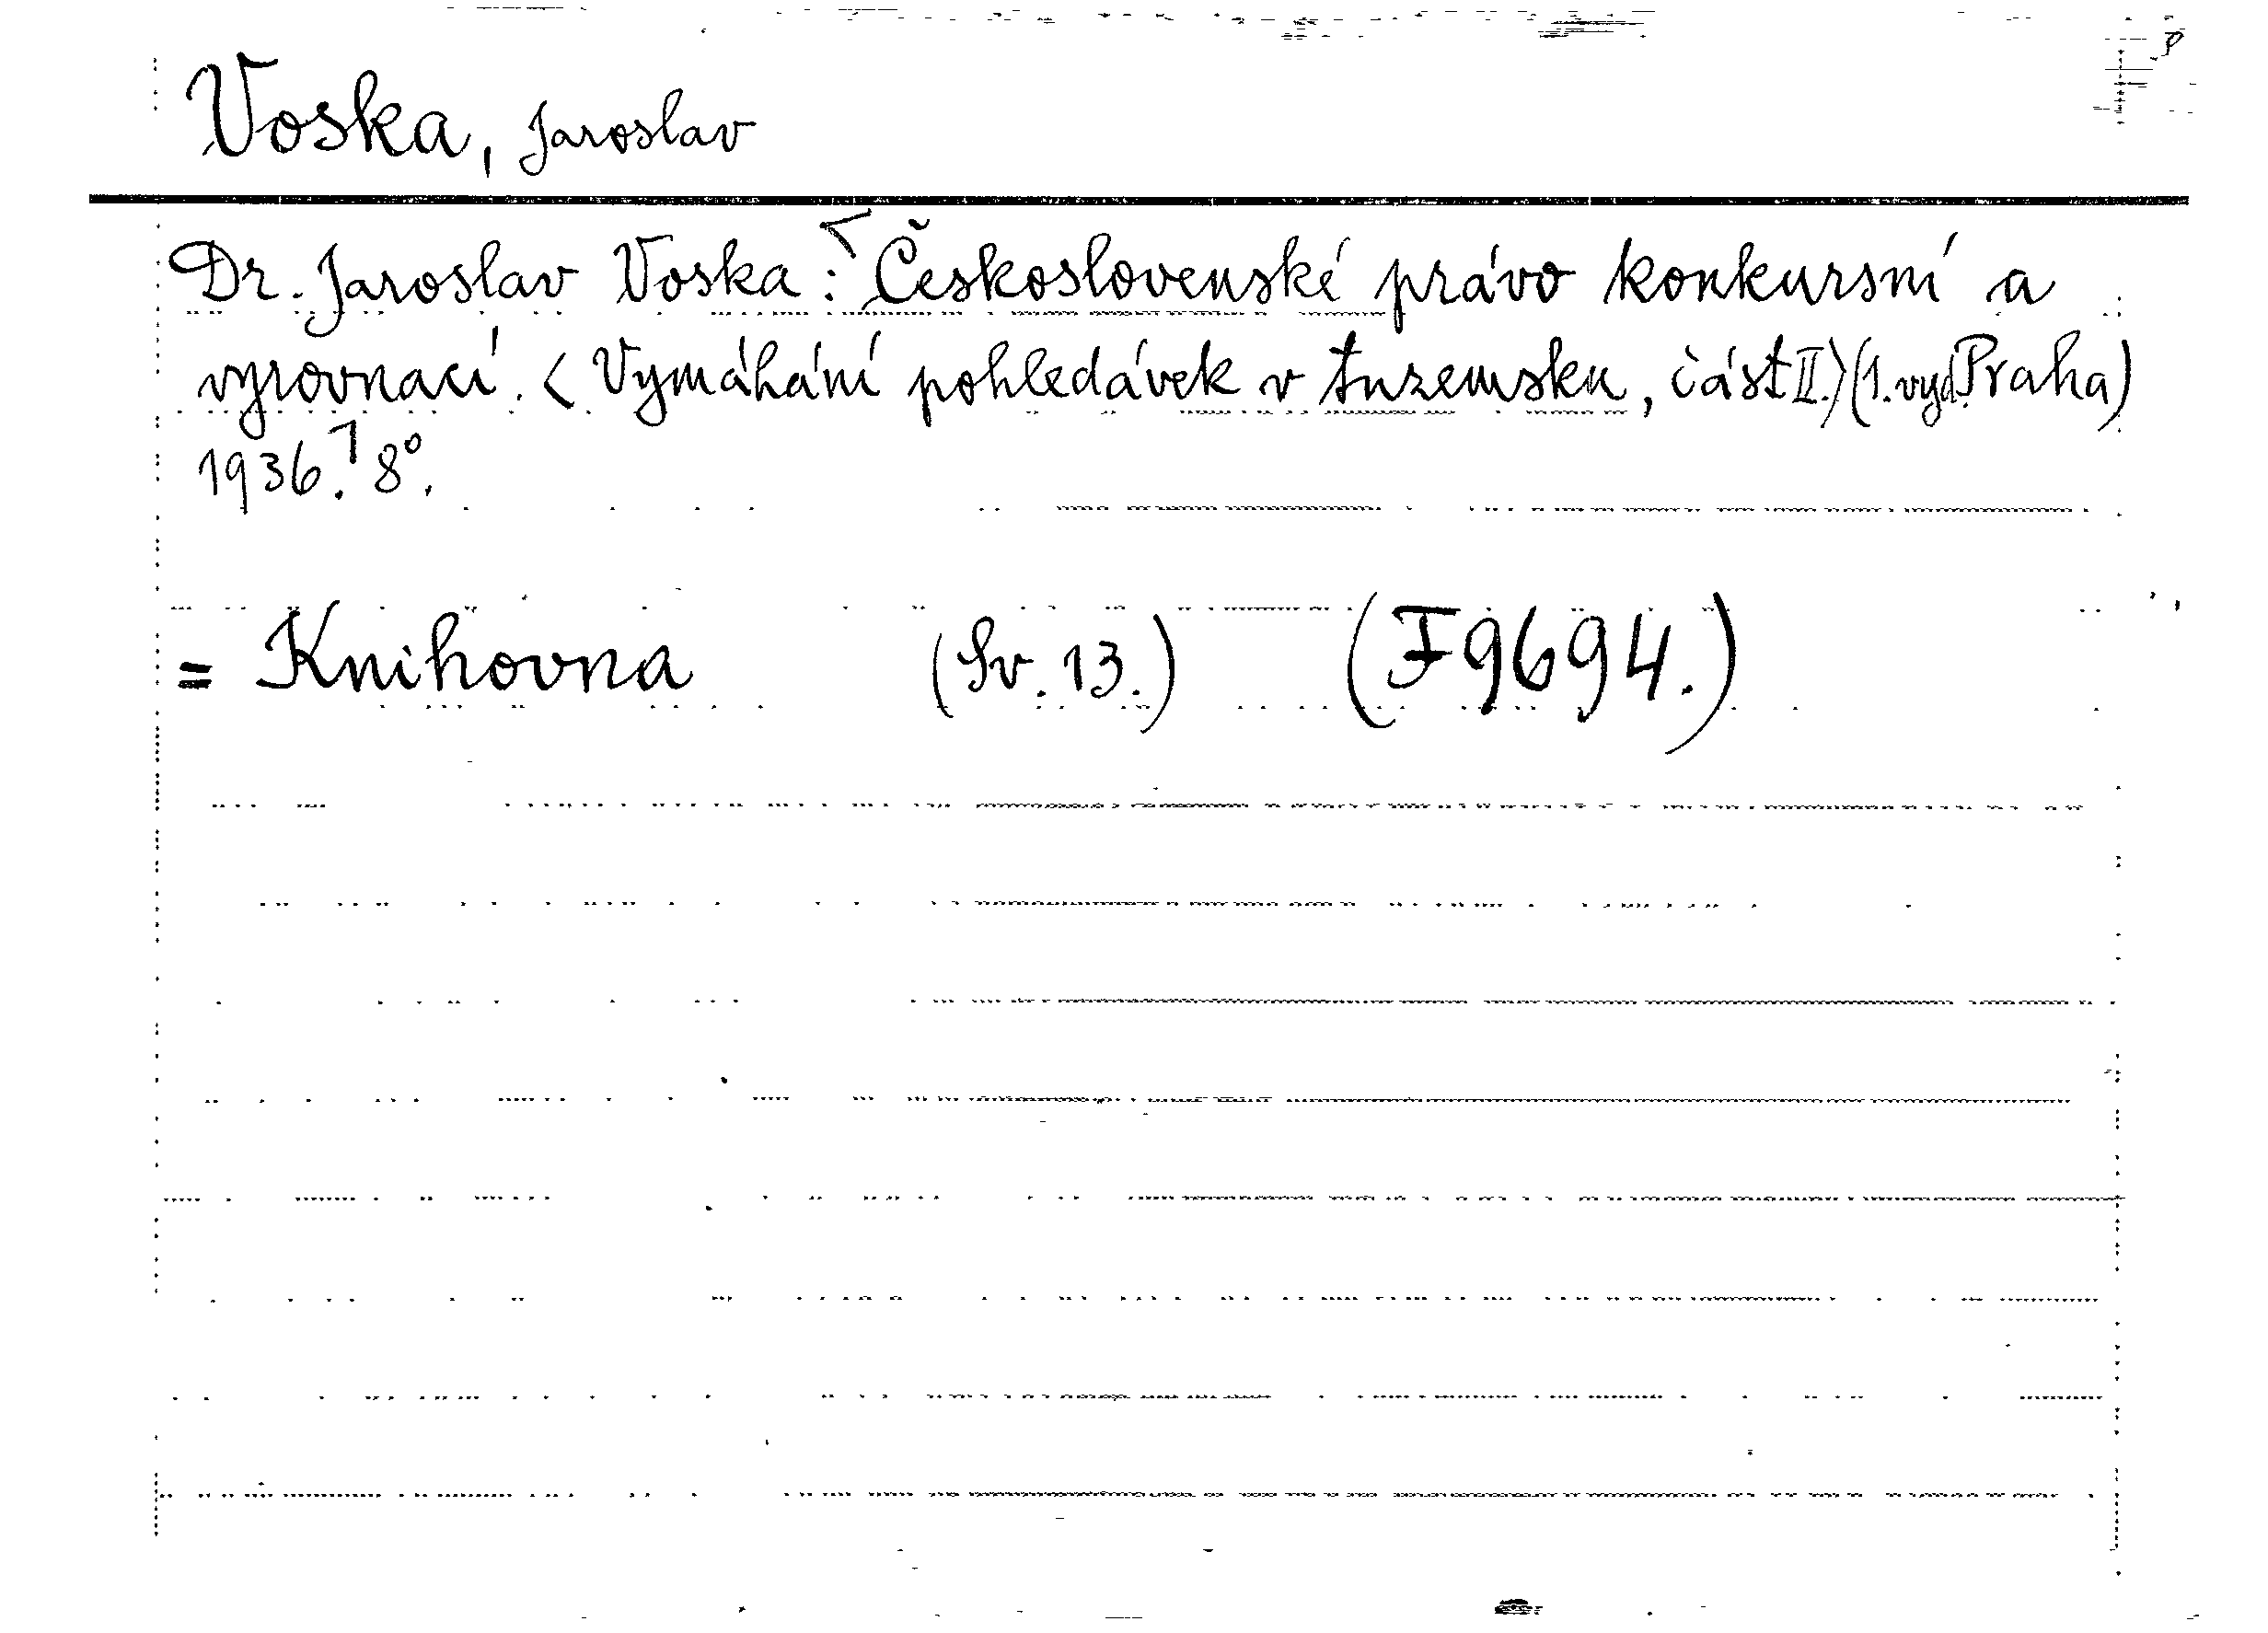 Voska, Jaroslav
Dr. Jaroslav Voska: Československé právo konkursní a
vyrovnací. < Vymáhání pohledávek v tuzemsku, část II.> (1. vyd. Praha)
1936. 8°.
= Knihovna (Sv. 13.) (F 9694.)